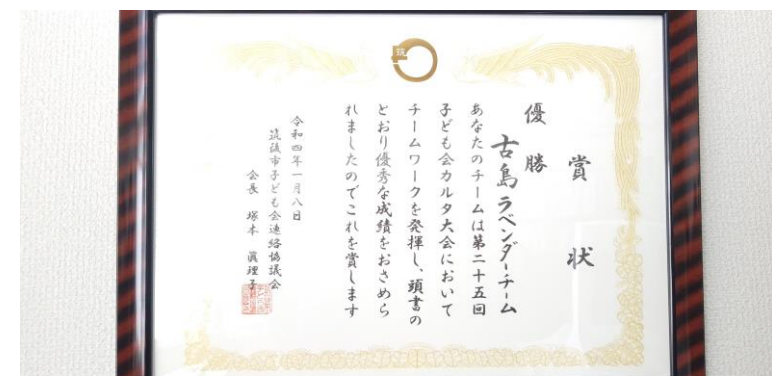 賞状
優勝
古島ラベンダーチーム
あなたのチームは第二十五回
子ども会カルタ大会において
チームワークを発揮し、頭書の
とおり優秀な成績をおさめら
れましたのでこれを賞します
令和四年一月八日
筑後市子ども会連絡協議会
会長 塚本 眞理子